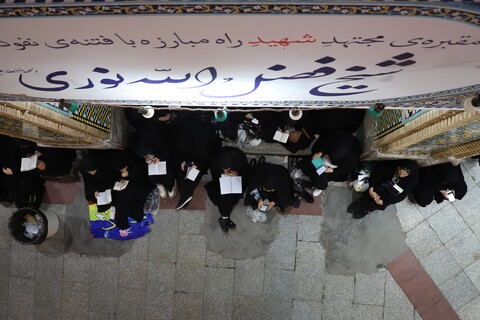 مقبره‌ی مجتهدِ شهیدِ راه مبارزه با فتنه‌ی نفوذ
شیخ فضل الله نوری